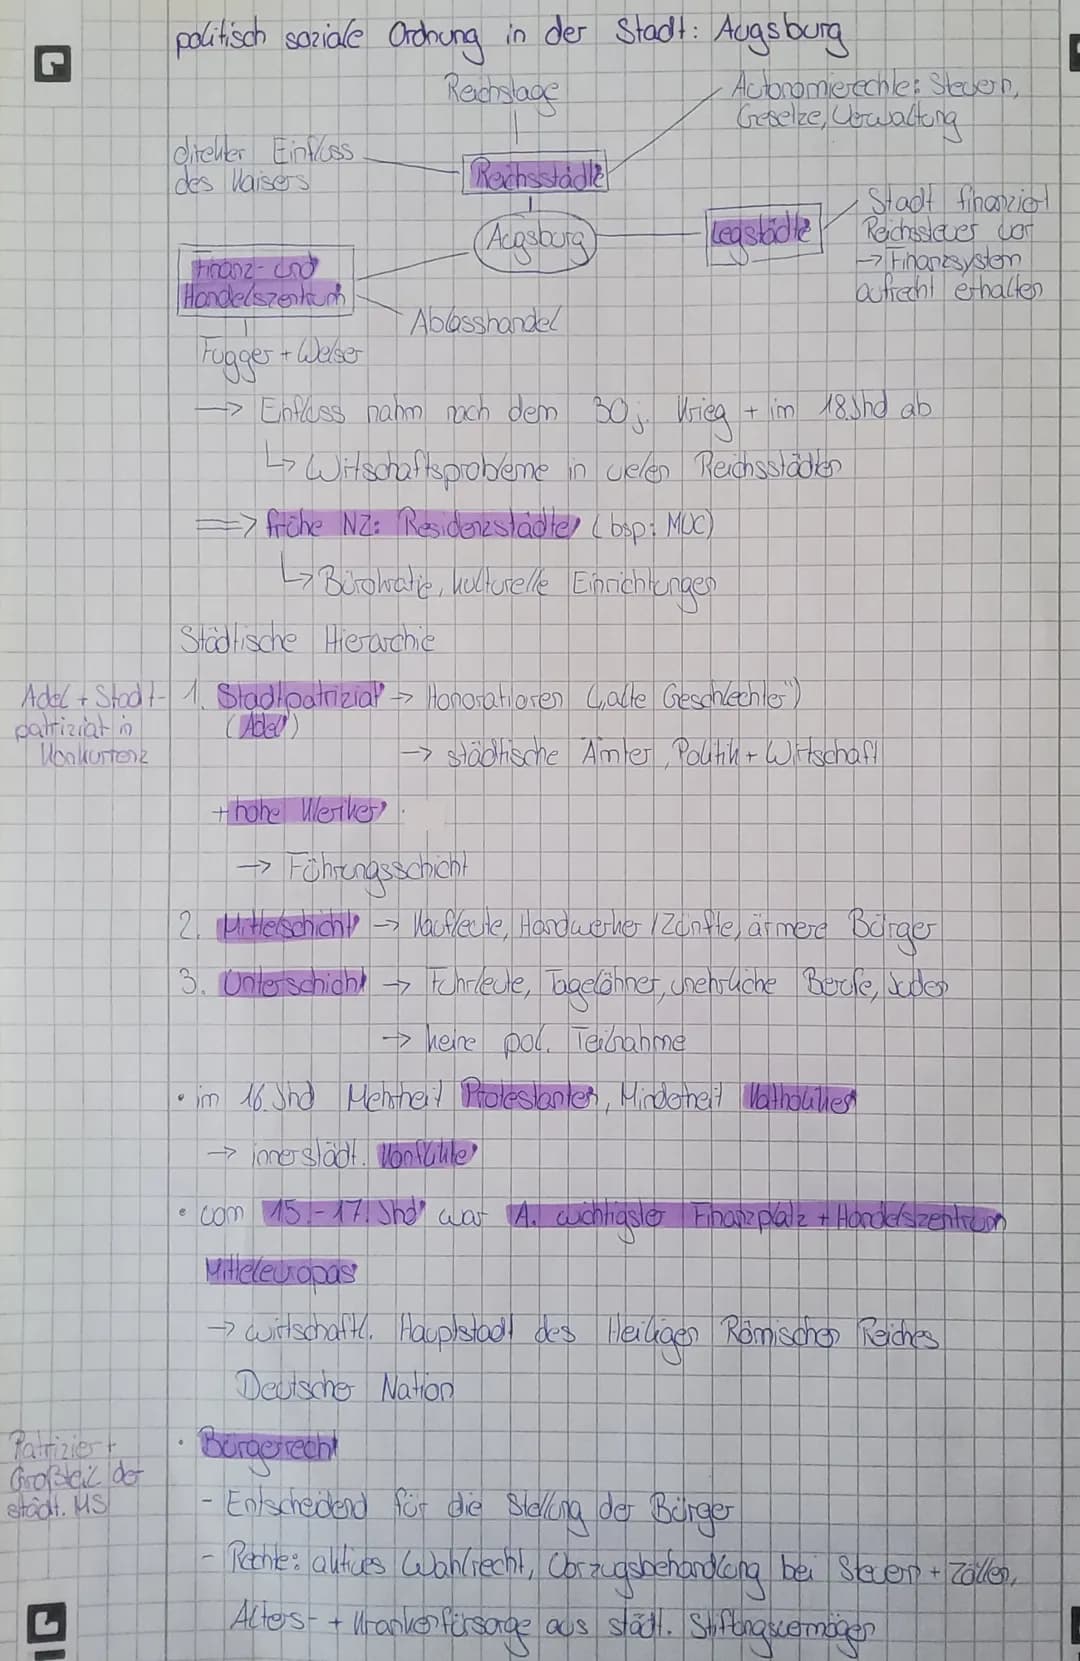 politisch soziale Ordnung in der Stadt: Augsburg
Reichstage
Autonomierechte: Steuern,
Gesetze, Verwaltung
direkter Einfluss
des Kaisers
Reichsstädte
Augsburg
Legstädte
Stadt finanziert
Reichssteuer vor
→ Finanzsystem
aufrecht erhalten
Finanz- und
Handelszentrum
Ablasshandel
Fugger + Welser
→ Einfluss nahm nach dem 30j. Krieg + im 18.Jhd ab
↳ Wirtschaftsprobleme in vielen Reichsstädten
⇒ frühe NZ: Residenzstädte (bsp: MUC)
↳ Bürokratie, kulturelle Einrichtungen
Städtische Hierarchie
Adel + Stadt-
patriziat in
Konkurrenz
1. Stadtpatriziat → Honoratioren („alte Geschlechter")
(Adel)
→ städtische Ämter, Politik + Wirtschaft
+ hohe Kleriker
→ Führungsschicht
2. Mittelschicht → Kaufleute, Handwerker / Zünfte, ärmere Bürger
3. Unterschicht → Fuhrleute, Tagelöhner, unehrliche Berufe, Juden
→ keine pol. Teilnahme
• im 16. Jhd Mehrheit Protestanten, Minderheit Katholiken
→ innerstädt. Konflikte
• vom 15.-17. Jhd war A. wichtigster Finanzplatz + Handelszentrum
Mitteleuropas
→ wirtschaftl. Hauptstadt des Heiligen Römischen Reiches
Deutscher Nation
Patrizier +
Großteil der
städt. MS
• Bürgerrecht
- Entscheidend für die Stellung der Bürger
- Rechte: aktives Wahlrecht, Vorzugsbehandlung bei Steuern + Zöllen,
Alters- + Krankenfürsorge aus städt. Stiftungsvermögen